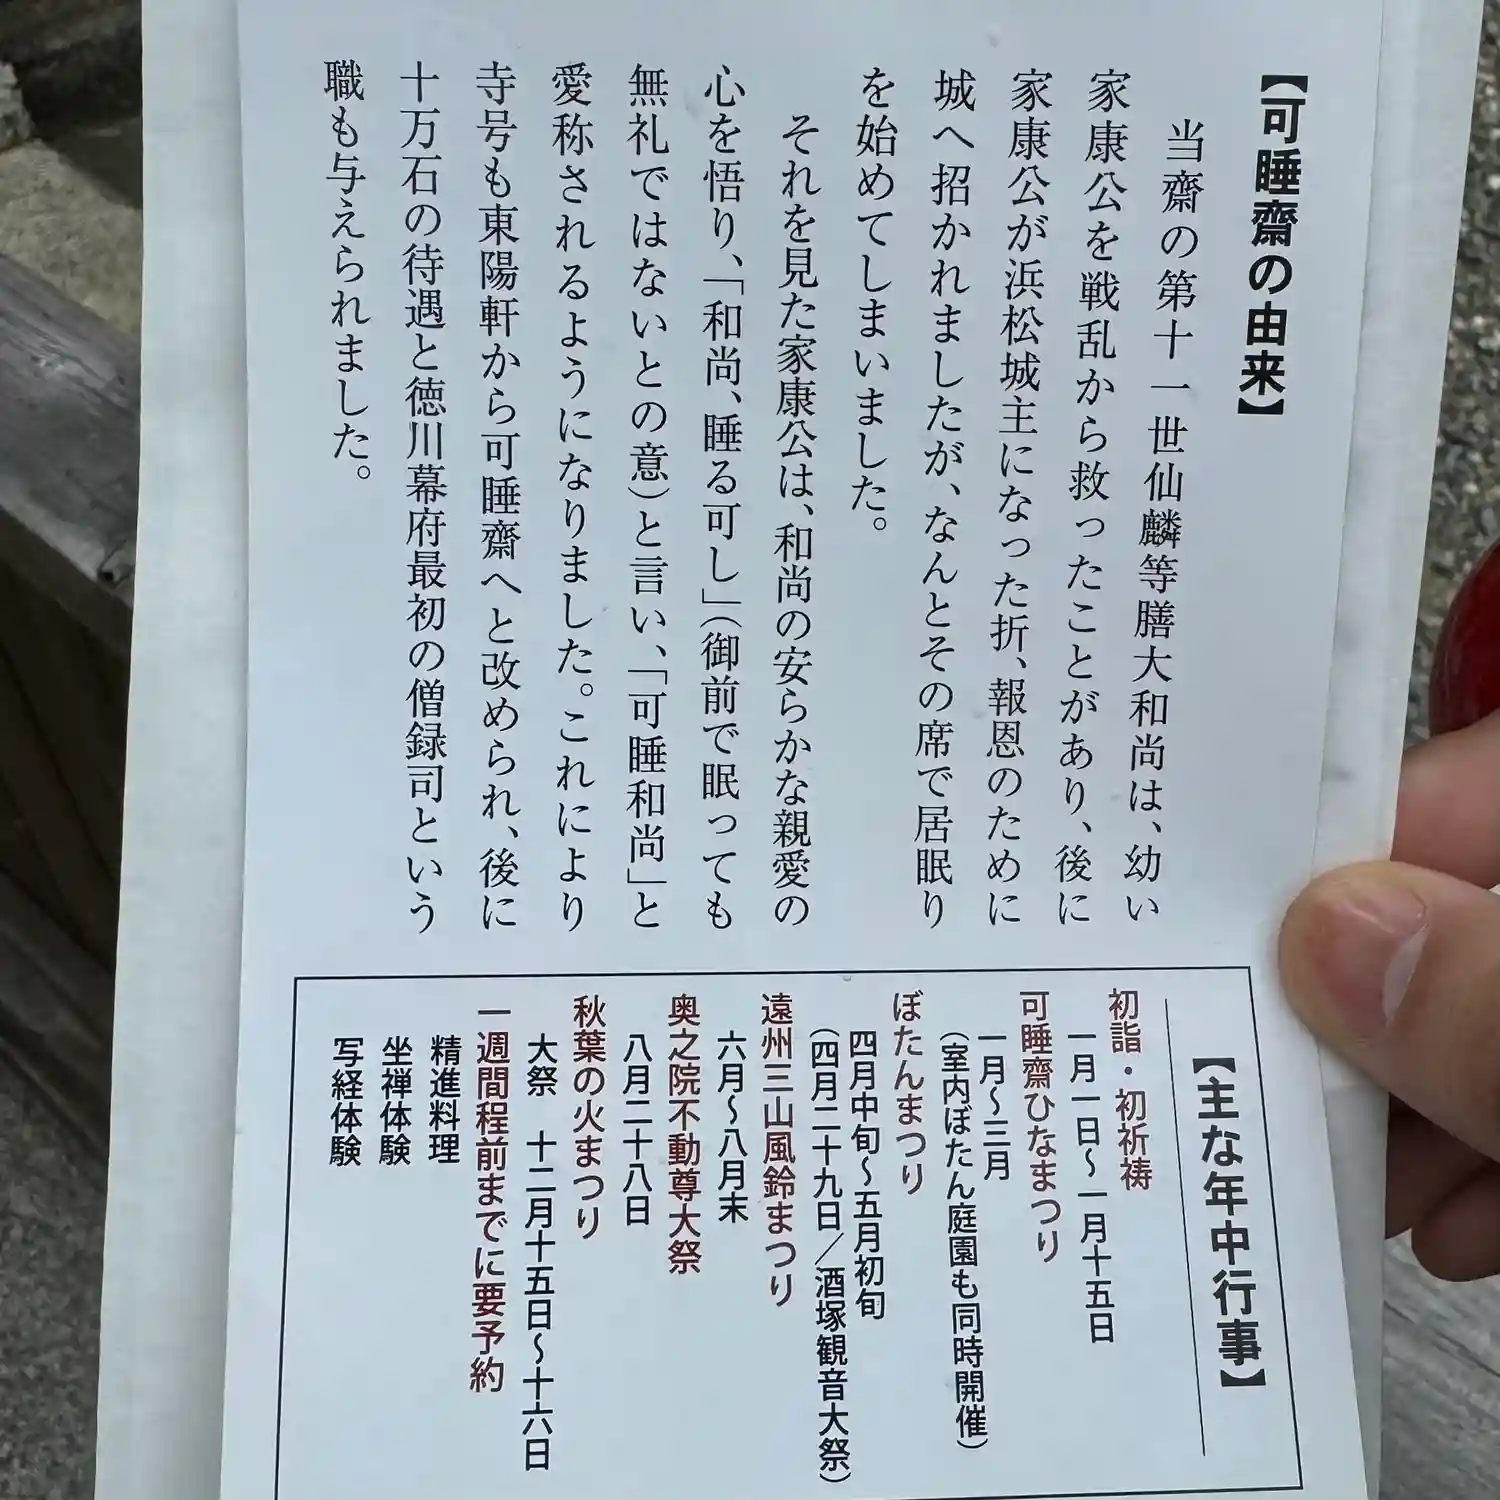 【可睡齋の由来】
当齋の第十一世仙麟等膳大和尚は、幼い
家康公を戦乱から救ったことがあり、後に
家康公が浜松城主になった折、報恩のために
城へ招かれましたが、なんとその席で居眠り
を始めてしまいました。
それを見た家康公は、和尚の安らかな親愛の
心を悟り、「和尚、睡る可し」（御前で眠っても
無礼ではないとの意）と言い、「可睡和尚」と
愛称されるようになりました。これにより
寺号も東陽軒から可睡齋へと改められ、後に
十万石の待遇と徳川幕府最初の僧録司という
職も与えられました。
【主な年中行事】
初詣・初祈祷
一月一日～一月十五日
可睡齋ひなまつり
一月～三月
（室内ぼたん庭園も同時開催）
ぼたんまつり
四月中旬～五月初旬
（四月二十九日／酒塚観音大祭）
遠州三山風鈴まつり
六月～八月末
奥之院不動尊大祭
八月二十八日
秋葉の火まつり
大祭　十二月十五日～十六日
一週間程前までに要予約
精進料理
坐禅体験
写経体験